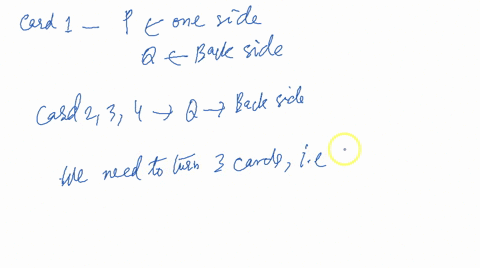 Card 1 — P ← one side
Q ← Back side
Card 2, 3, 4 → Q → Back side
We need to turn 3 cards, i.e